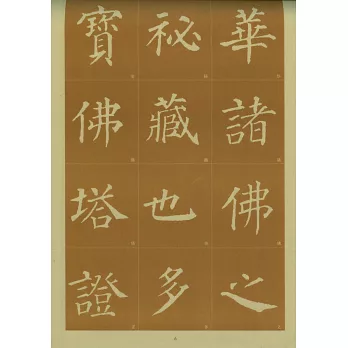 華諸佛之
秘藏也多
寶佛塔證